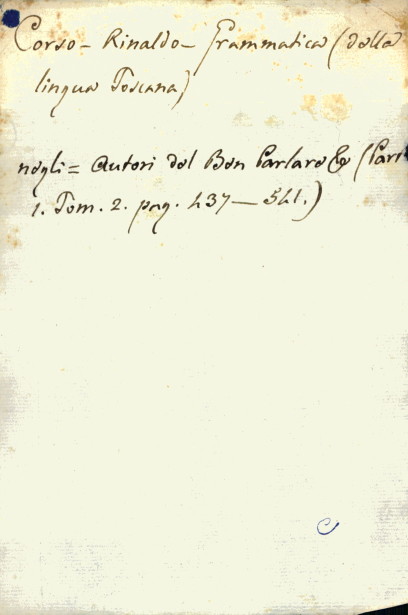 Corso - Rinaldo - Grammatica (della
lingua Toscana)
negli = Autori del Ben Parlare & (Part
1. Tom. 2. pag. 437 — 541.)
C